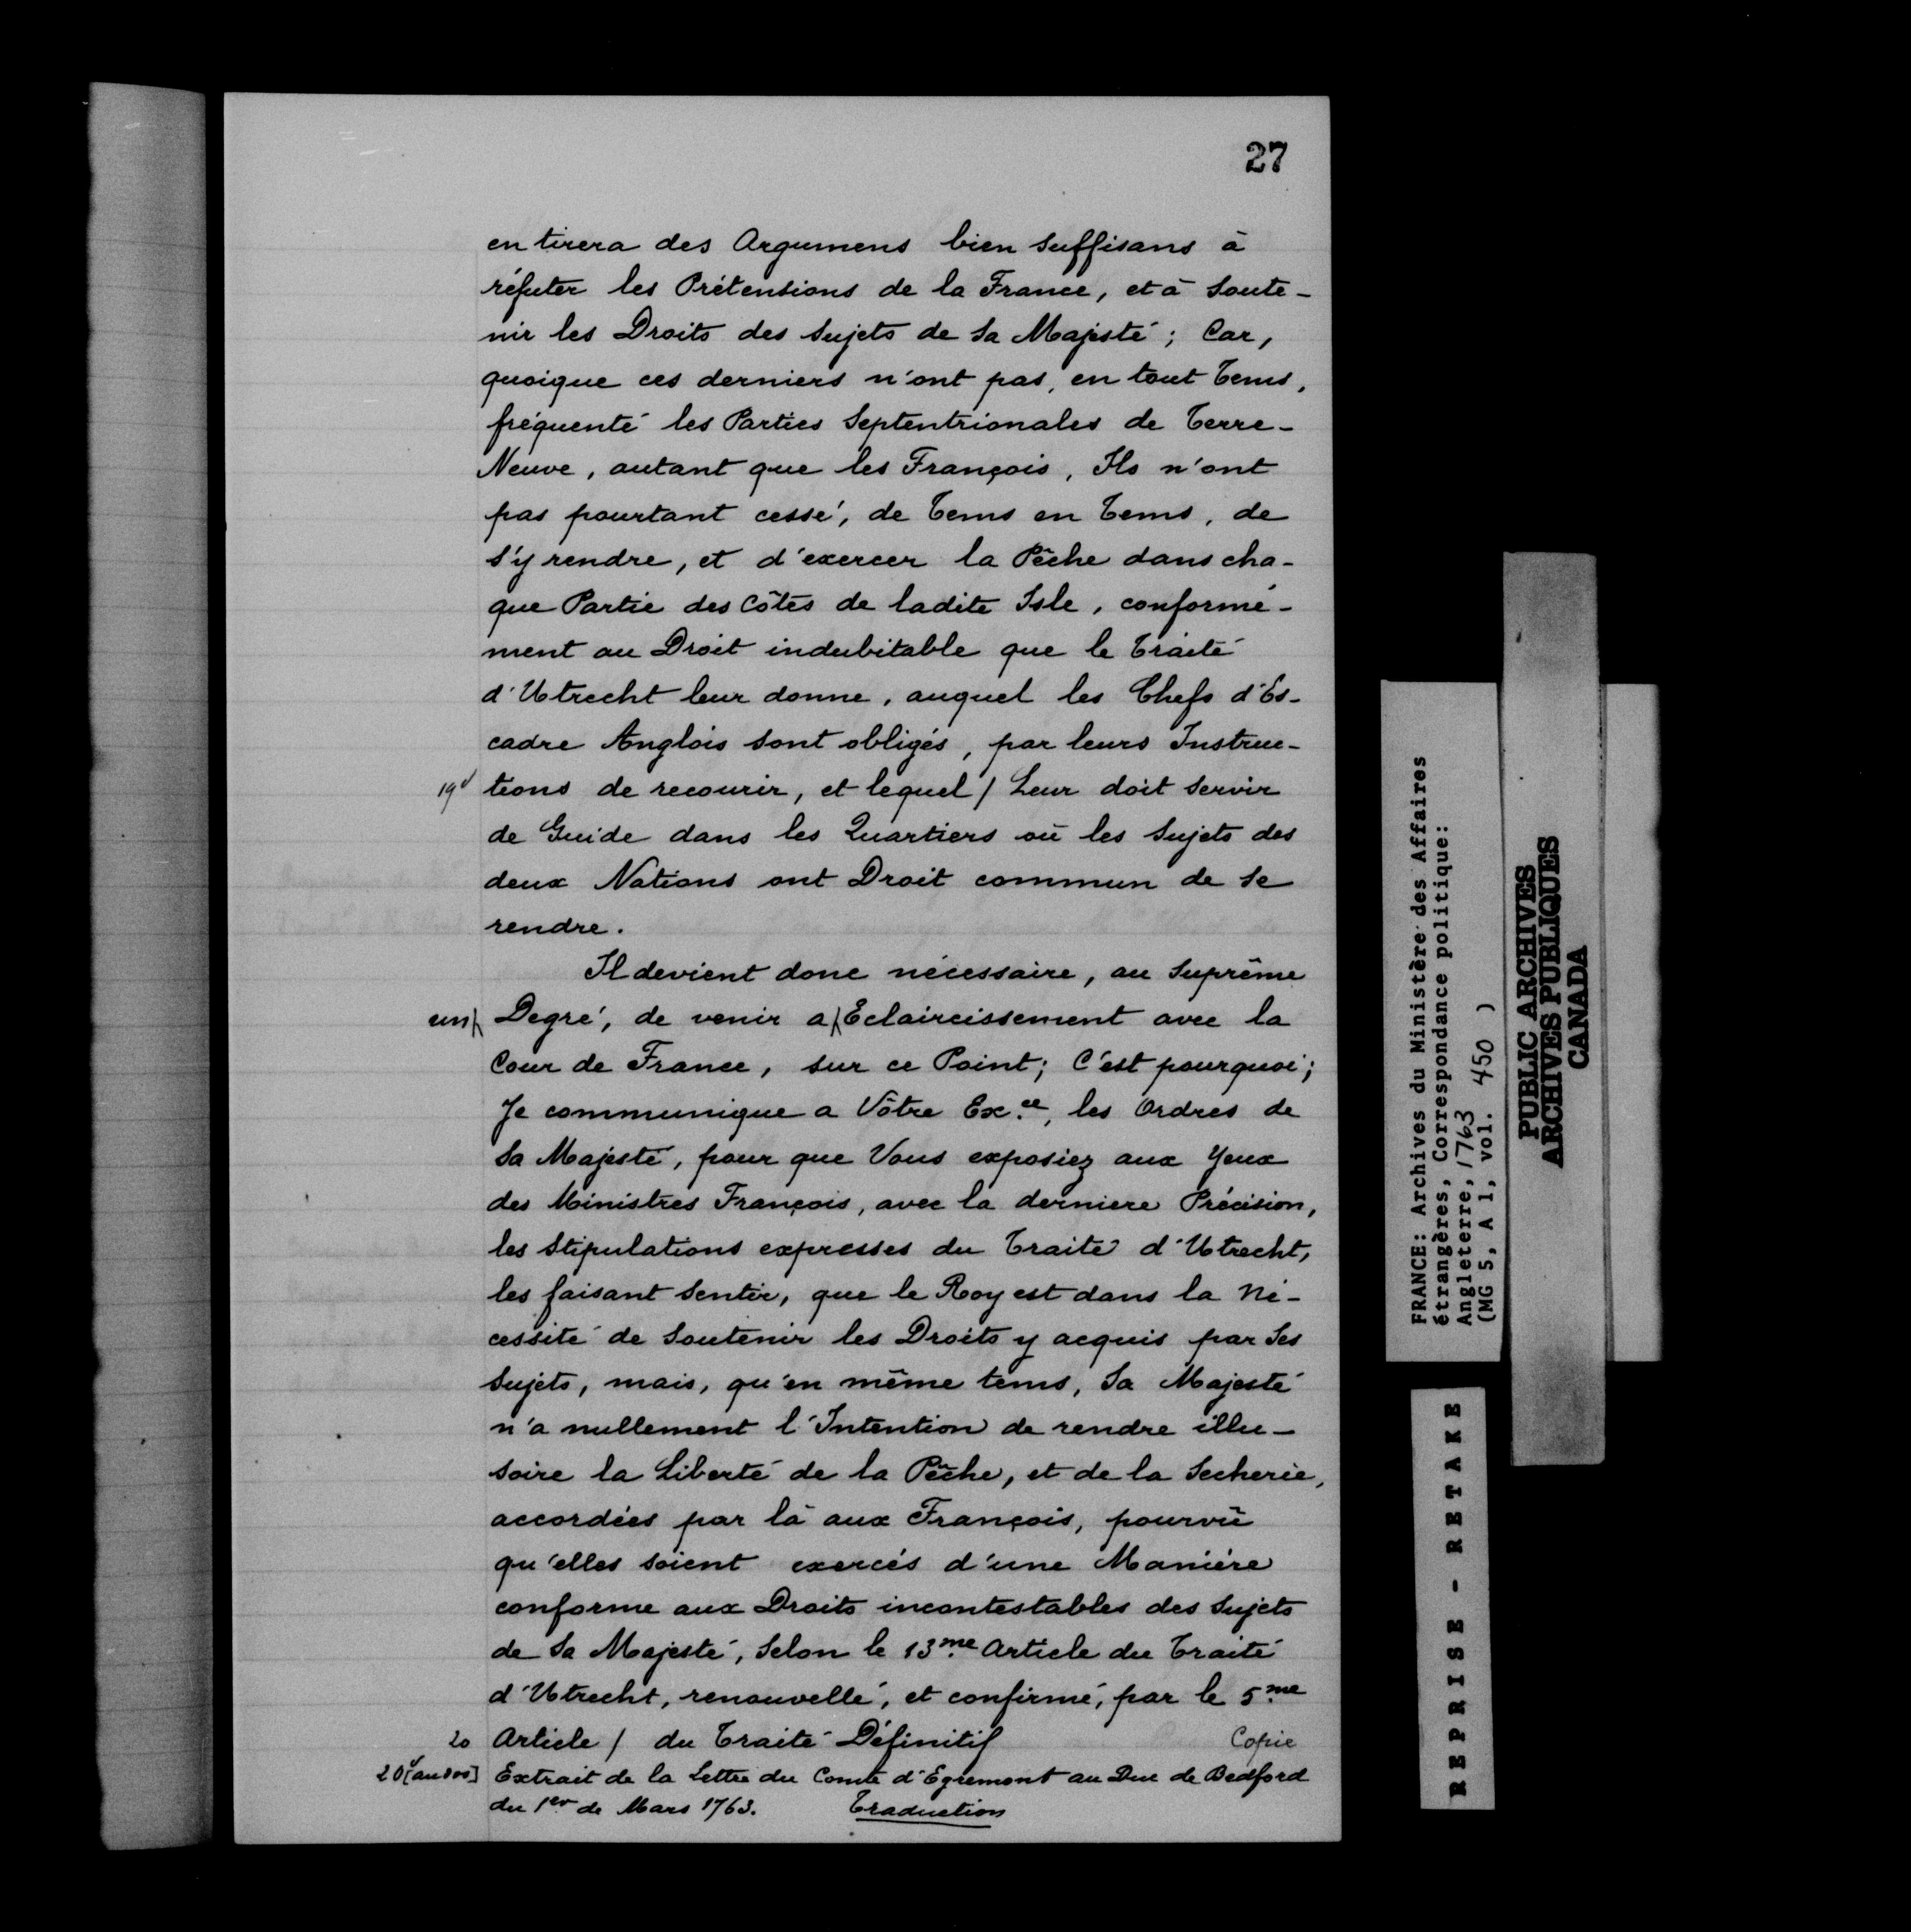 27
en tirera des Argumens bien suffisans à
réfuter les Prétensions de la France, et à Soute-
nir les Droits des Sujets de Sa Majesté; Car,
quoique ces derniers n'ont pas, en tout Tems,
fréquenté les Parties Septentrionales de Terre-
Neuve, autant que les François, Ils n'ont
pas pourtant cessé, de Tems en Tems, de
s'y rendre, et d'exercer la Pêche dans cha-
que Partie des Côtes de ladite Isle, conformé-
ment au Droit indubitable que le Traité
d'Utrecht leur donne, auquel les Chefs d'Es-
cadre Anglois sont obligés, par leurs Instruc-
19v tions de recourir, et lequel / Leur doit servir
de Guide dans les Quartiers où les Sujets des
deux Nations ont Droit commun de se
rendre.
Il devient donc nécessaire, au Suprême
un/ Degré, de venir a/Eclaircissement avec la
Cour de France, sur ce Point; C'est pourquoi;
Je communique a Vôtre Ex.ce, les Ordres de
Sa Majesté, pour que Vous exposiez aux Yeux
des Ministres François, avec la derniere Précision,
les Stipulations expresses du Traité d'Utrecht,
les faisant sentir, que le Roy est dans la Né-
cessité de Soutenir les Droits y acquis par Ses
Sujets, mais, qu'en même tems, Sa Majesté
n'a nullement l'Intention de rendre illu-
soire la Liberté de la Pêche, et de la Secherie,
accordées par là aux François, pourvû
qu'elles soient exercés d'une Maniére
conforme aux Droits incontestables des Sujets
de Sa Majesté, Selon le 13.me Article du Traité
d'Utrecht, renouvellé, et confirmé, par le 5.me
20 Article / du Traité Définitif Copie
20v [au dos] Extrait de la Lettre du Comte d'Egremont au Duc de Bedford
du 1er de Mars 1763. Traduction
FRANCE: Archives du Ministère des Affaires
étrangères, Correspondance politique:
Angleterre, 1763
(MG 5, A 1, vol. 450 )
PUBLIC ARCHIVES
ARCHIVES PUBLIQUES
CANADA
REPRISE - RETAKE